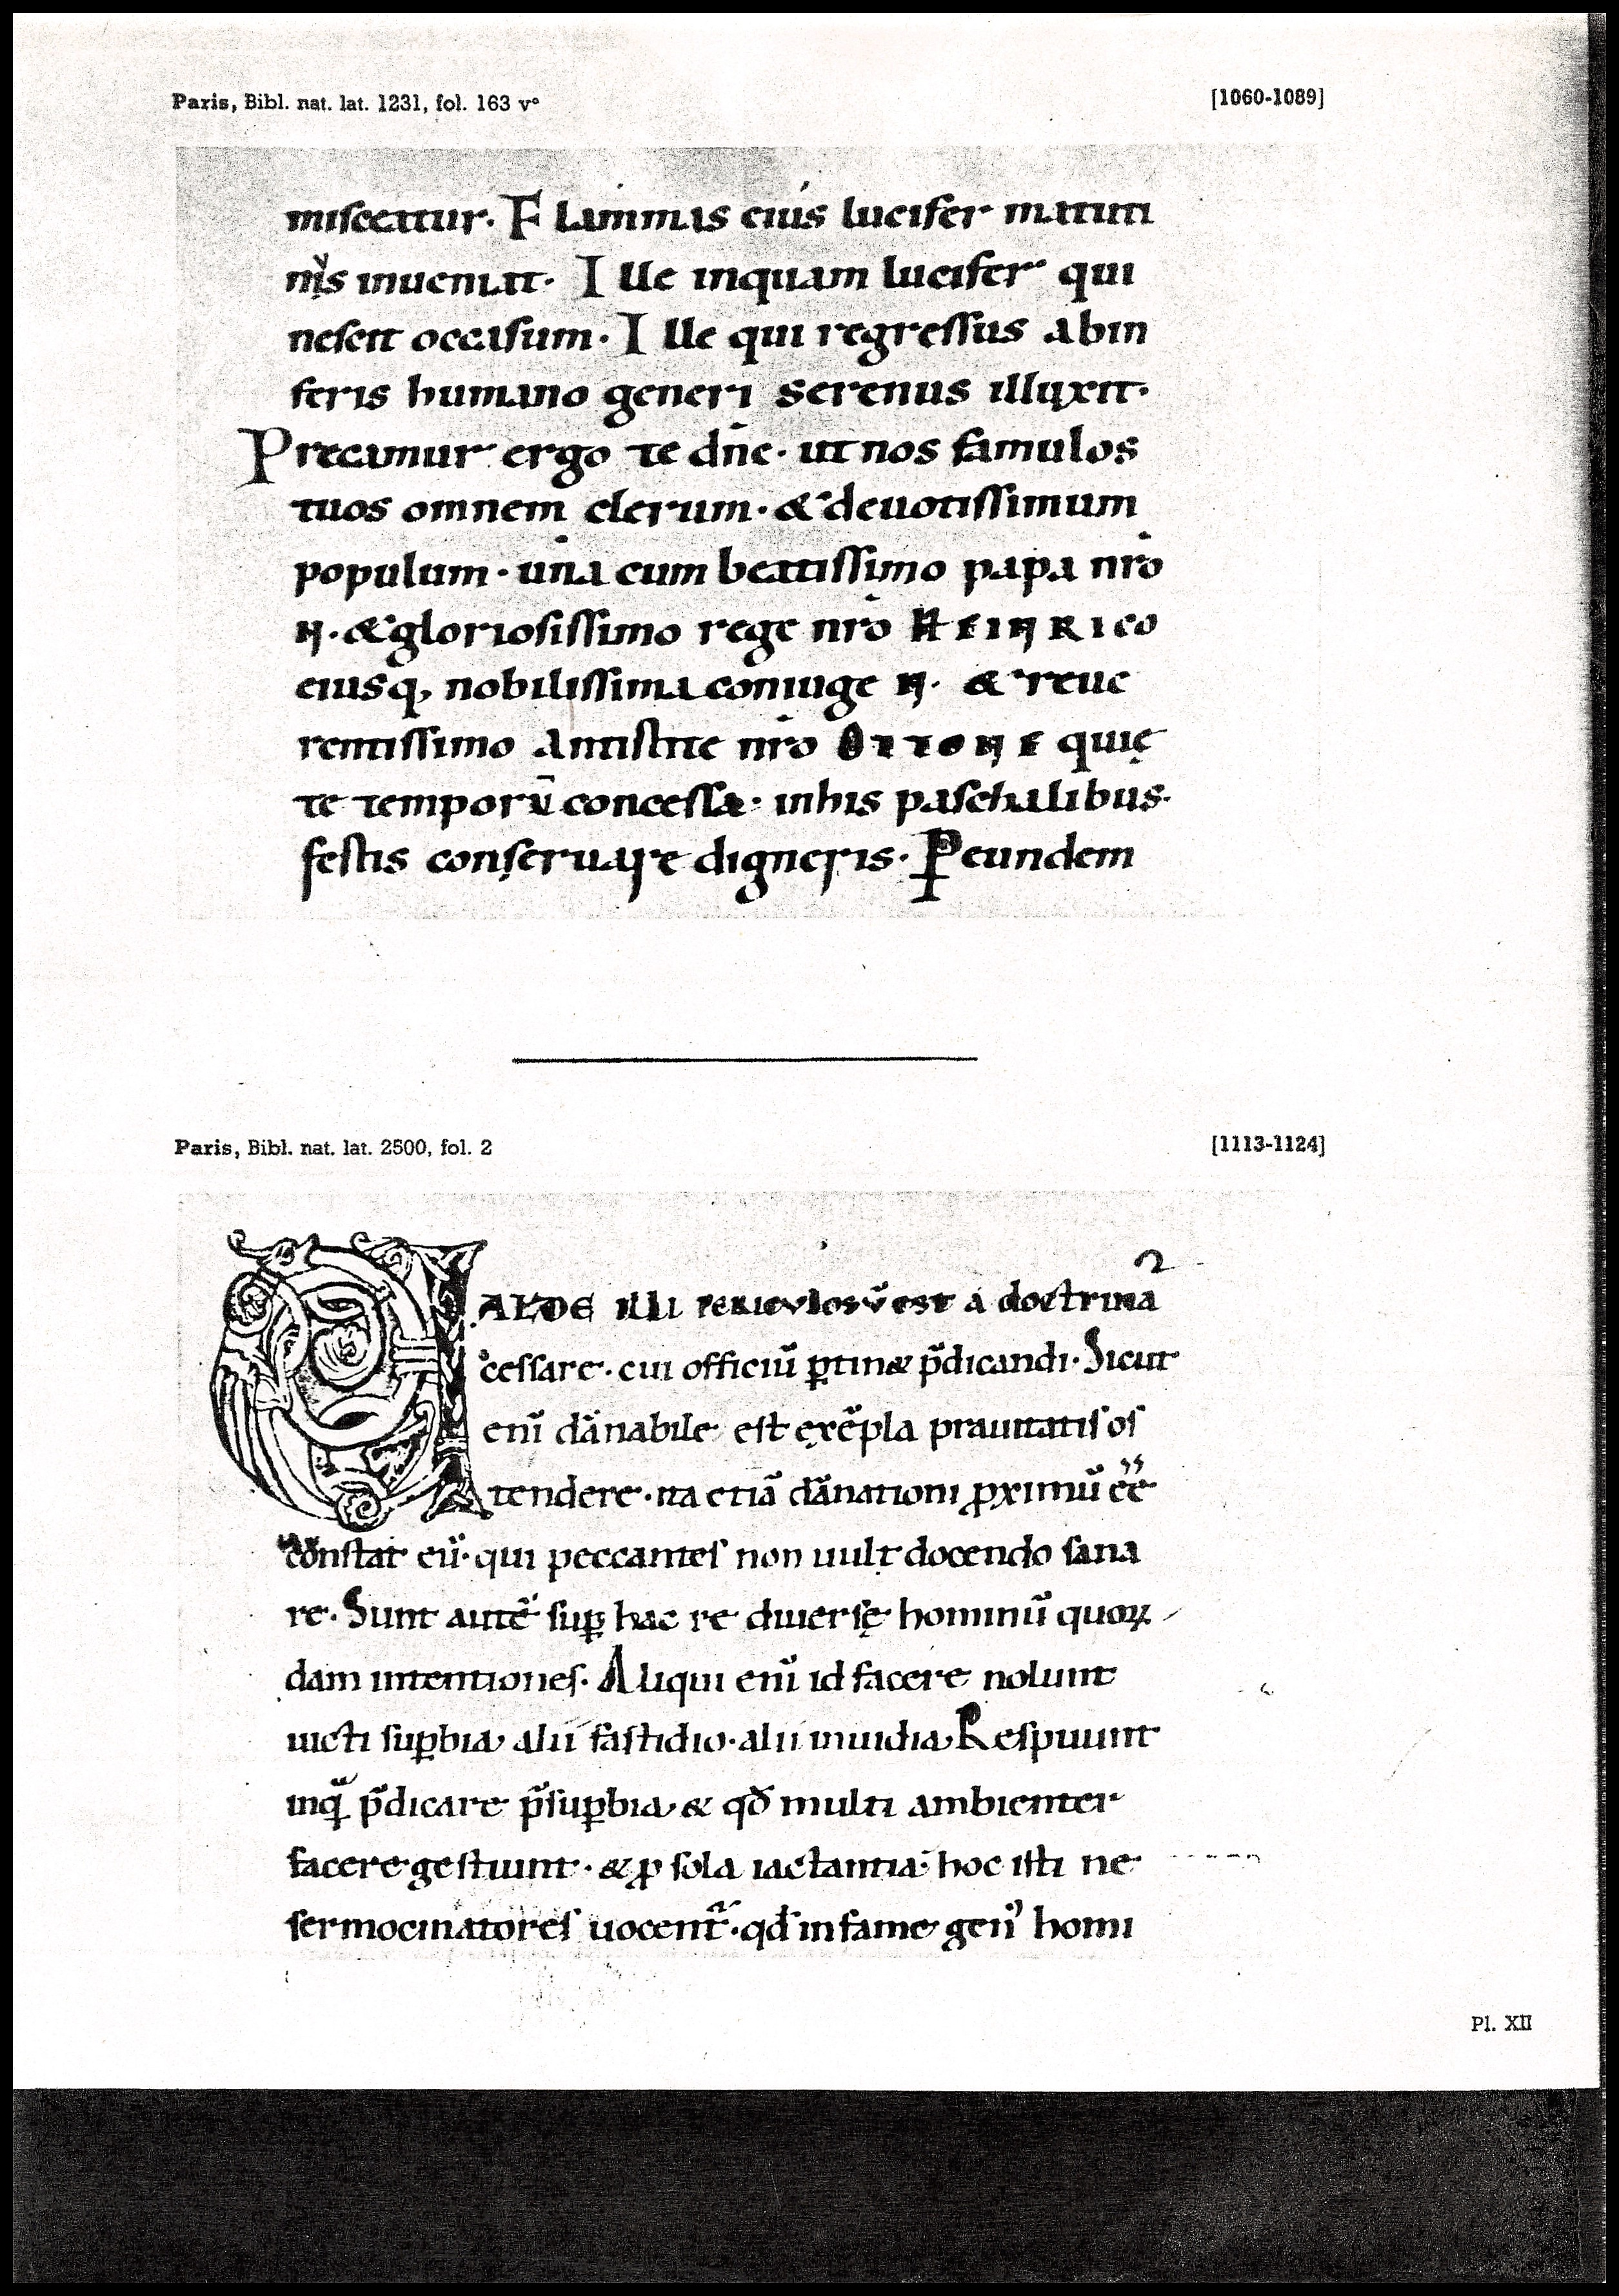 Paris, Bibl. nat. lat. 1231, fol. 163 v° [1060-1089]
misceatur. Flammas eius lucifer matuti
nis inueniat. Ille inquam lucifer qui
nescit occasum. Ille qui regressus ab in
feris humano generi serenus illuxit.
Precamur ergo te dn̄e. ut nos famulos
tuos omnem clerum. & deuotissimum
populum. una cum beatissimo papa nr̄o
N. & gloriosissimo rege nr̄o HEINRICO
eiusq; nobilissima coniuge N. & reue
rentissimo antistite nr̄o OTTONE quię
te temporū concessa. in his paschalibus
festis conseruare digneris. P̱ eundem
Paris, Bibl. nat. lat. 2500, fol. 2 [1113-1124]
VALDE illi periculosū est a doctrina
cessare. cui officiū ꝑtin& p̄dicandi. Sicut
enī dānabile est exēpla prauitatis os
tendere. ita etiā dānationi ꝓximū eē
constat eū. qui peccantes non uult docendo sana
re. Sunt autē suꝑ hac re diuersę hominū quoꝝ
dam intentiones. Aliqui enī id facere nolunt
uicti suꝑbia, alii fastidio. alii inuidia. Respuunt
inquā p̄dicare p̄ suꝑbia, & qđ multi ambienter
facere gestiunt. & ꝓ sola iactantia. hoc isti ne
sermocinatores uocent̄. qđ infame gen' homi
Pl. XII